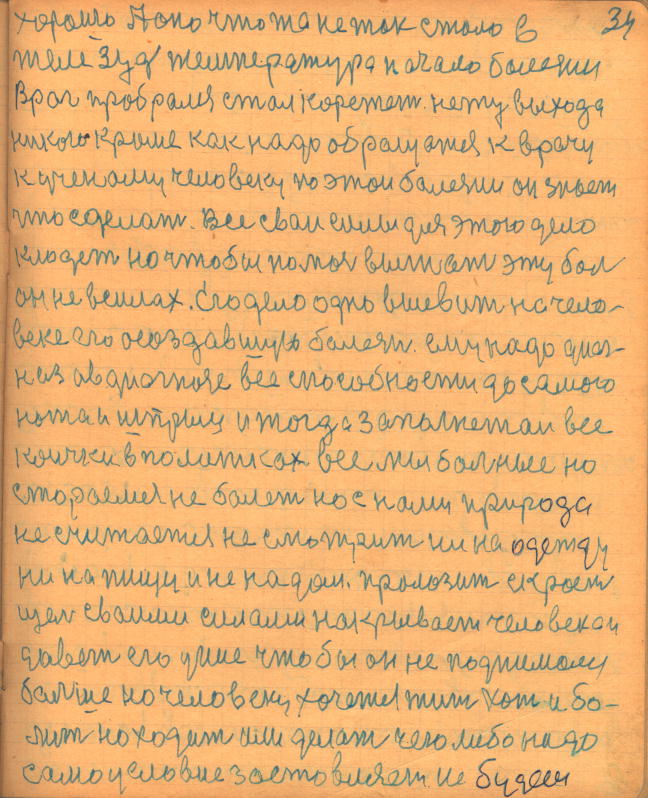 хорошо А оно что та не так стало в 34
теле зуд температура начало болезни
Враг пробрался стал корежет. нету выхода
никого кроме как надо обращатся к врачу
к ученому человеку по этои болезни он знает
что сделат. Все сваи силы для этого дело
кладет но чтобы помоч выгнат эту бол
он не всилах. Его дело одно вшевит на чело-
веке его осоздавшую болезн. ему надо диаг-
ноз авдиагнозе все способности до самого
ножа и штрыц и тогда заполнетаи все
коички в политках все мы болные но
стораемся не болет но с нами природа
не считается не смотрит ни на одежду
ни на пищи и не на дом. пролозит скроет
щел своими силами накрывает человека и
давет его уше чтобы он не поднимался
болше но человеку хочется жит хот и бо-
лит но ходит или делат чего либо надо
само условие заставляет не будеш